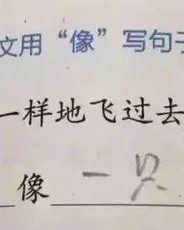 文用“像”写句子
一样地飞过去
像 一只